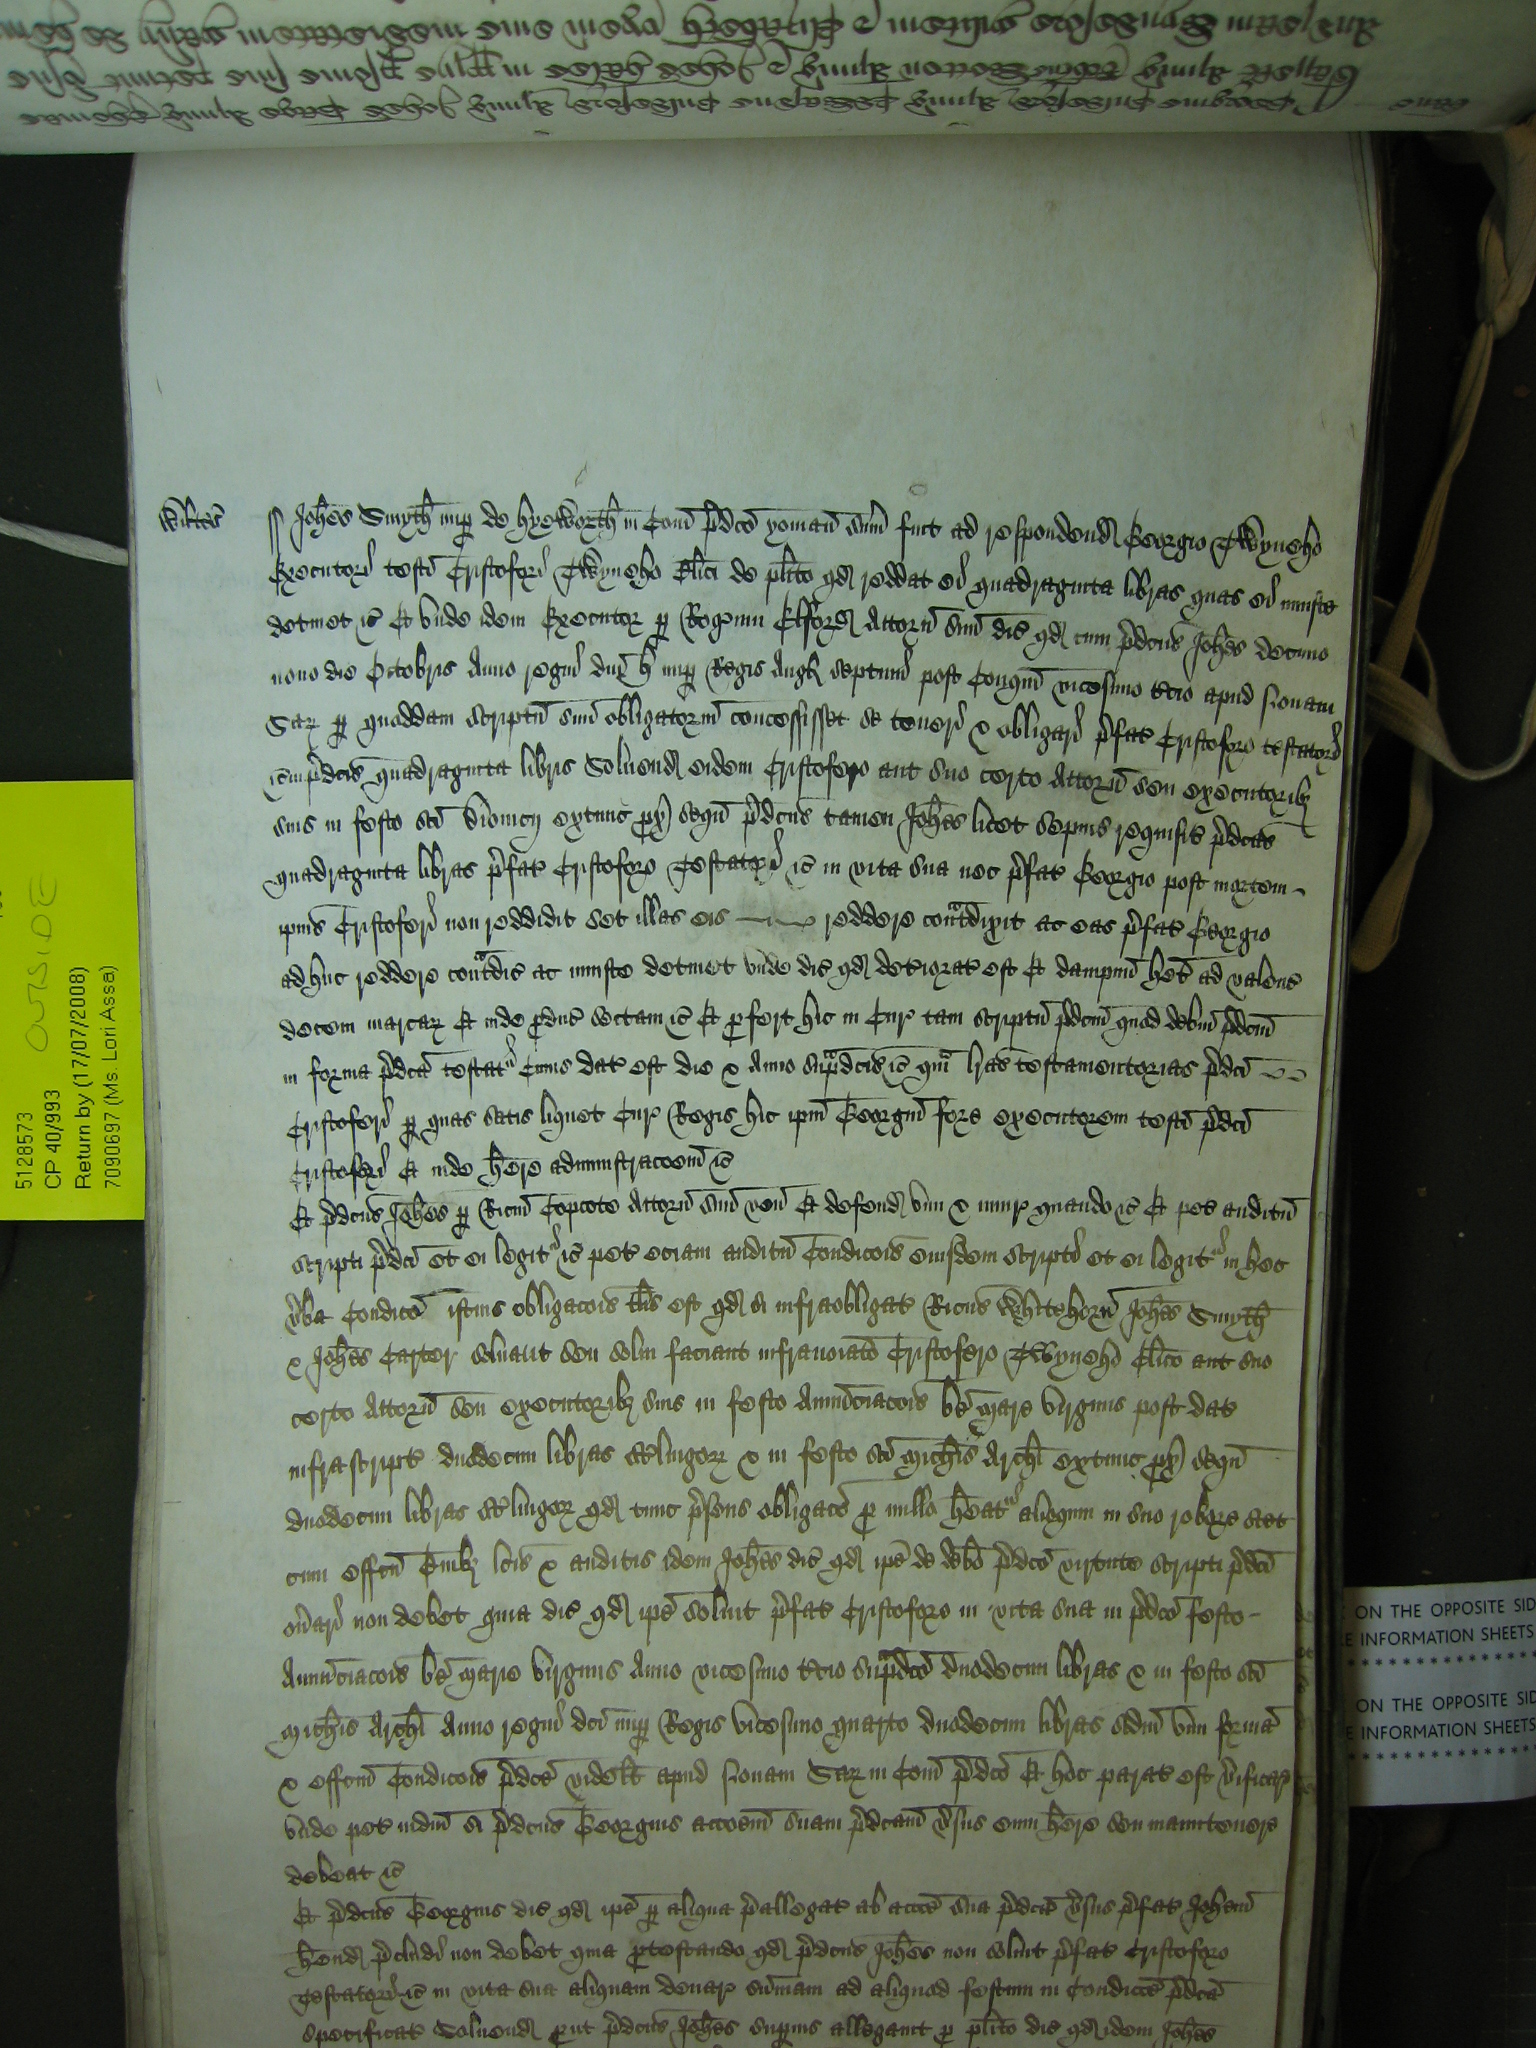 Wiltes
Johes Smyth nup de Hyeworth in Com pdco yoman sum fuit ad respondend Georgio Twyneho
Executori testi Cristoferi Twyneho Clici de plito qd reddat ei quadraginta libras quas ei iniuste
detinet &c Et unde idem Executor p Attorn suu dic qd cum pdcus Johes decimo
nono die Octobris Anno regni dni H nup Regis Angl septimi post Conqm vicesimo tcio apud novam
Sar p quoddam scriptu suu obligatoriu concessisset se teneri & obligari pfat Cristofero testatori
in pdcis quadraginta libris Solvend eidem Cristofero aut suo certo Attorn seu executorib
suis in festo sci Dionicij extunc px sequ pdcus tamen Johes licet sepius requisit pdcas
quadraginta libras pfat Cristofero Testatori &c in vita sua nec pfat Georgio post mortem
ipius Cristoferi non reddidit set illas eis reddere contdixit ac eas pfat Georgio
adhuc reddere contdic ac iniuste detinet unde dic qd deteriorat est Et dampnu het ad valenc
decem marcar Et inde pduc sectam &c Et pfert hic in Cur tam scriptu pdcm quod debm pdcm
in forma pdca testat Cuius dat est die & Anno supdcis &c qm lras testamentorias pdci
Cristoferi p quas satis liquet Cur Regis hic ipm Georgiu fore executorem testi pdci
Cristoferi Et inde here administracoem &c
Et pdcus Johes p Ricm Topcote Attorn suu ven Et defend vim & iniur quando &c Et pet auditu
scripti pdci et ei legit &c pet eciam auditu Condicois eiusdem scripti et ei legit in hec
vba Condico istius obligacois talis est qd si infraobligat Ricus Whitehorn Johes Smyth
& Johes Carter solvant seu solvi faciant infranoiato Cristofero Twyneho Clico aut suo
certo Attorn seu executorib suis in festo Annuciacois be Marie virginis post dat
infrascript duodecim libras sterlingor & in festo sci Michis Archi extunc px sequ
duodecim libras sterlingor qd tunc psens obligaco p nullo heat alioquin in suo robore stet
cum effcu Quib lcis & auditis idem Johes dic qd ipe de debo pdco virtute scripti pdci
onari non debet quia dic qd ipe solvit pfat Cristofero in vita sua in pdco festo
Annuciacois be Marie virginis Anno vicesimo tcio supdco duodecim libras & in festo sci
Michis Archi Anno regni dci nup Regis vicesimo quarto duodecim libras scdm vim formam
& effcm Condicois pdce videlt apud novam Sar in Com pdco Et hoc parat est vificare
unde pet iudm si pdcus Georgius accoem suam pdcam vsus eum here seu manutenere
debeat &c
Et pdcus Georgius dic qd ipe p aliqua pallegat ab accoe sua pdca vsus pfat Johem
hend pcludi non debet quia ptestando qd pdcus Johes non solvit pfat Cristofero
Testatori &c in vita sua aliquam denar summam ad aliquod festum in Condicoe pdca
specificat Solvend put pdcus Johes supius allegavit p plito dic qd idem Johes
5128573
OUTSIDE
CP 40/993
Return by (17/07/2008)
7090697 (Ms. Lori Assa)
ON THE OPPOSITE SID
E INFORMATION SHEETS
ON THE OPPOSITE SID
E INFORMATION SHEETS